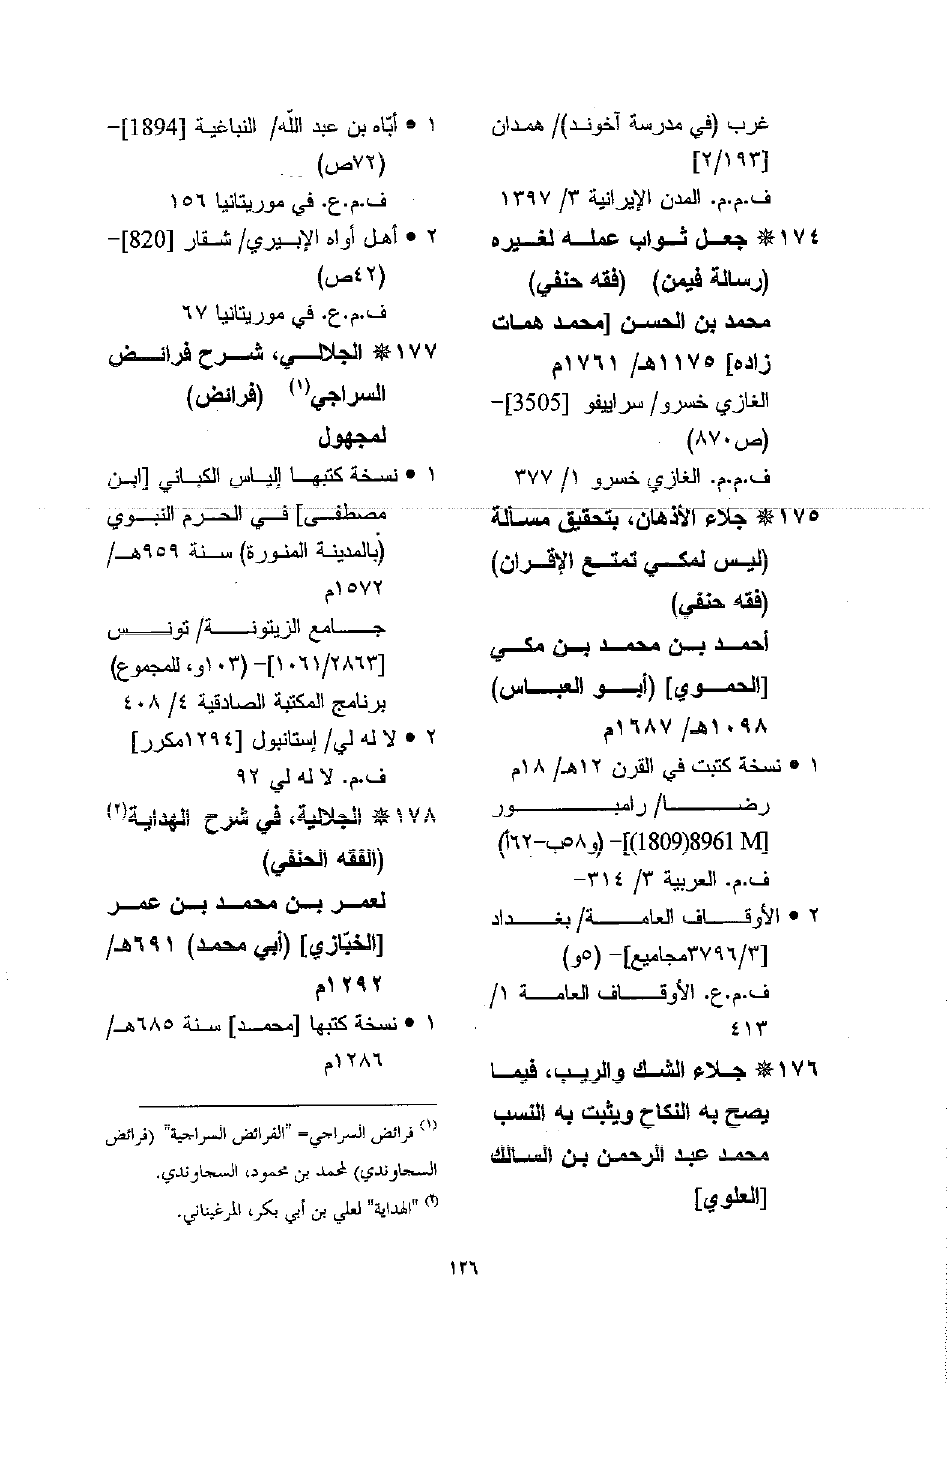 غرب (في مدرسة آخوند)/ همدان
[٢/١٩٣]
ف.م.م. المدن الإيرانية ٣/ ١٣٩٧
١٧٤* جعل ثواب عمله لغيره
(رسالة فيمن) (فقه حنفي)
محمد بن الحسن [محمد همات
زاده] ١١٧٥هـ/ ١٧٦١م
الغازي خسرو/ سراييفو [3505]-
(ص٨٧٠)
ف.م.م. الغازي خسرو ١/ ٣٧٧
١٧٥* جلاء الأذهان، بتحقيق مسألة
(ليس لمكي تمتع الإقران)
(فقه حنفي)
أحمد بن محمد بن مكي
[الحموي] (أبو العباس)
١٠٩٨هـ/ ١٦٨٧م
١ • نسخة كتبت في القرن ١٢هـ/ ١٨م
رضا/ رامبور
[M 8961(1809)]- (و٥٨ب-٦٢أ)
ف.م. العربية ٣/ ٣١٤-
٢ • الأوقاف العامة/ بغداد
[٣٧٩٦/٣مجاميع]- (٥و)
ف.م.ع. الأوقاف العامة ١/
٤١٣
١٧٦* جلاء الشك والريب، فيما
يصح به النكاح ويثبت به النسب
محمد عبد الرحمن بن السالك
[العلوي]
١ • أبّاه بن عبد الله/ النباغية [1894]-
(٧٢ص)
ف.م.ع. في موريتانيا ١٥٦
٢ • أهل أواه الإبيري/ شقار [820]-
(٤٢ص)
ف.م.ع. في موريتانيا ٦٧
١٧٧* الجلالي، شرح فرائض
السراجي(١) (فرائض)
لمجهول
١ • نسخة كتبها إلياس الكباني [ابن
مصطفى] في الحرم النبوي
(بالمدينة المنورة) سنة ٩٥٩هـ/
١٥٧٢م
جامع الزيتونة/ تونس
[١٠٦١/٢٨٦٣]- (١٠٣و، للمجموع)
برنامج المكتبة الصادقية ٤/ ٤٠٨
٢ • لا له لي/ إستانبول [١٢٩٤مكرر]
ف.م. لا له لي ٩٢
١٧٨* الجلالية، في شرح الهداية(٢)
(الفقه الحنفي)
لعمر بن محمد بن عمر
[الخبّازي] (أبي محمد) ٦٩١هـ/
١٢٩٢م
١ • نسخة كتبها [محمد] سنة ٦٨٥هـ/
١٢٨٦م
(١) فرائض السراجي= "الفرائض السراجية" (فرائض
السجاوندي) لمحمد بن محمود، السجاوندي.
(٢) "الهداية" لعلي بن أبي بكر، المرغيناني.
١٢٦